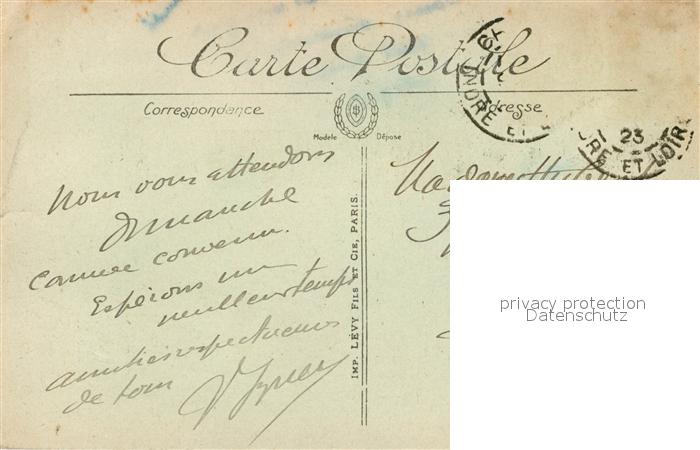 Carte Postale
Correspondance
Adresse
Modèle Déposé
Nous vous attendons
Dimanche
comme convenu.
Espérons un
meilleur temps
amitiés respectueuses
de tous
IMP. LÉVY FILS ET CIE, PARIS.
INDRE ET
23
RE ET LOIR
Madame
privacy protection
Datenschutz